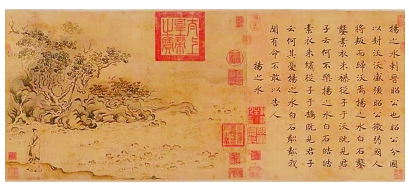 揚之水刺晉昭公也昭公分國
以封沃沃盛彊昭公微弱國人
將叛而歸沃焉揚之水白石鑿
鑿素衣朱襮從子于沃既見君
子云何不樂揚之水白石皓皓
素衣朱繡從子于鵠既見君子
云何其憂揚之水白石粼粼我
聞有命不敢以告人
揚之水
太上
皇帝
之寶